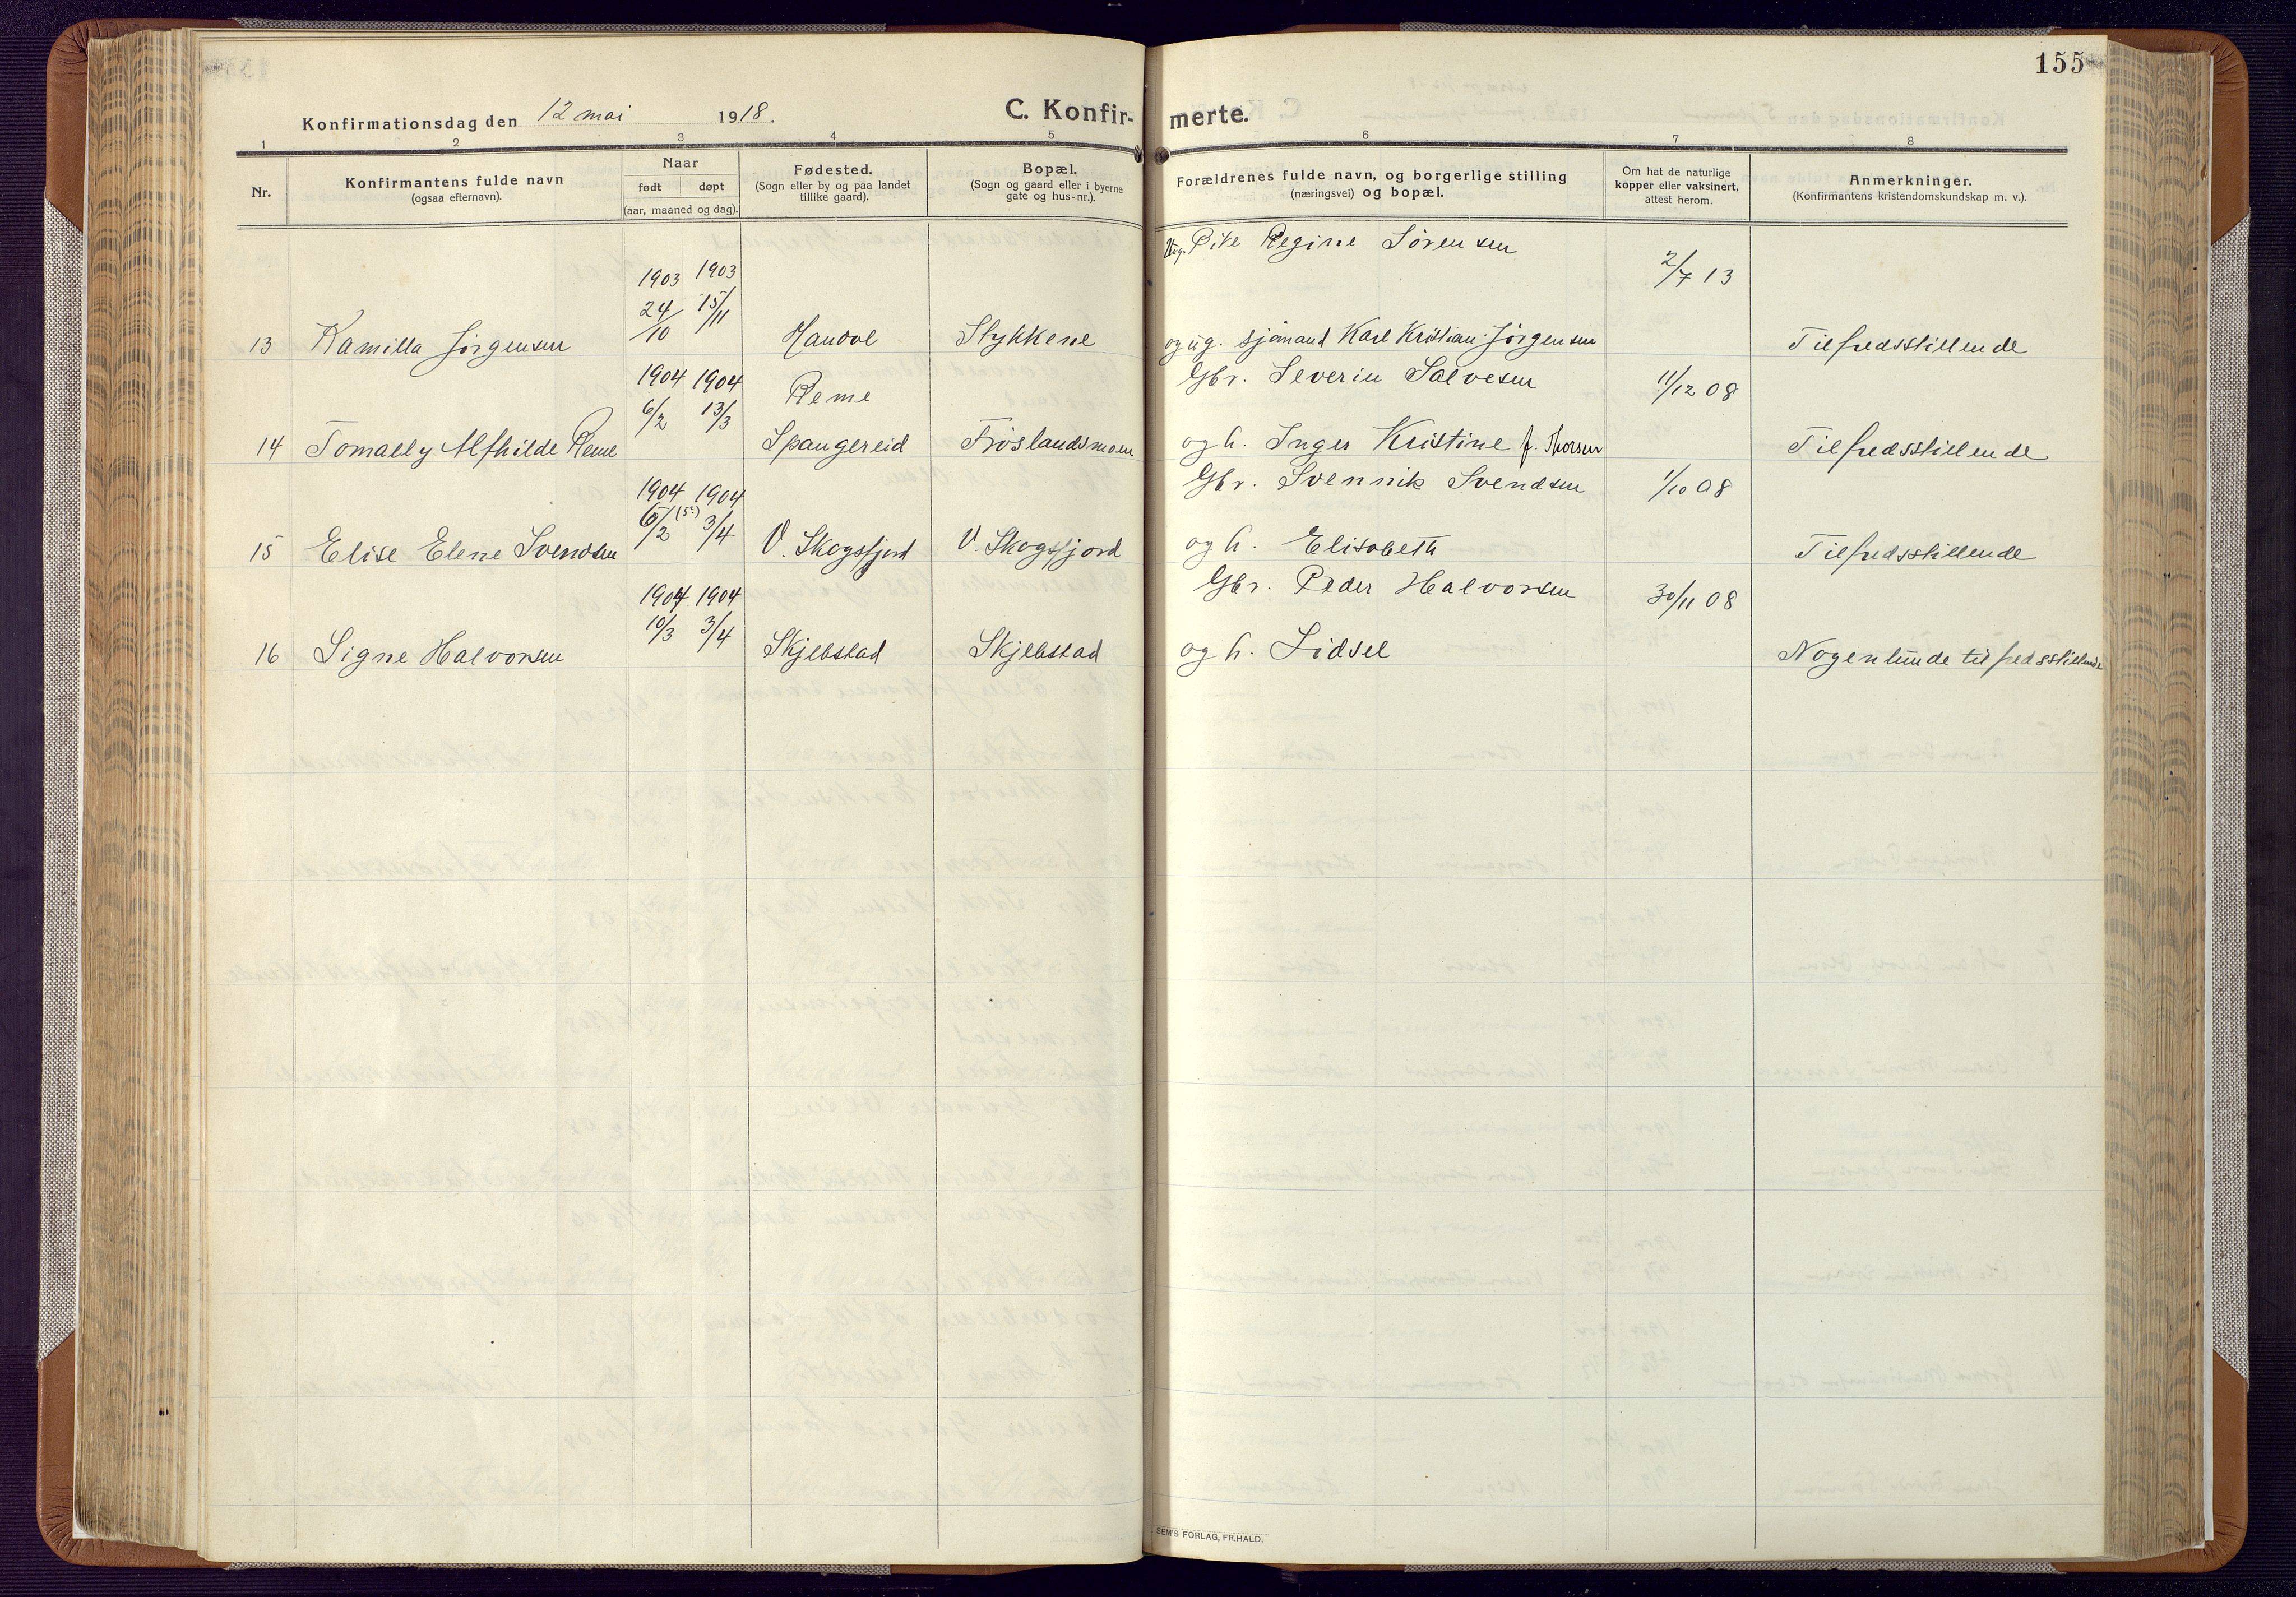 155
Konfirmationsdag den 12 mai 1918. C. Konfir- merte.
1 2 3 4 5 6 7 8
Nr.
Konfirmantens fulde navn
(ogsaa efternavn).
Naar
født døpt
(aar, maaned og dag).
Fødested.
(Sogn eller by og paa landet
tillike gaard).
Bopæl.
(Sogn og gaard eller i byerne
gate og hus-nr.).
Forældrenes fulde navn, og borgerlige stilling
(næringsvei) og bopæl.
Om hat de naturlige
kopper eller vaksinert,
attest herom.
Anmerkninger.
(Konfirmantens kristendomskundskap m. v.).
Pike Regine Sørensen
1903 1903 2/7 13
24/10 15/11
13 Kamilla Jørgensen Handol Stykkene og ug. sjømand Karl Kristian Jørgensen Tilfredsstillende
1904 1904 Reme Gbr. Severin Salvesen 11/12 08
6/2 13/3
14 Tomally Alfhilde Reme Spangereid Frøslandsmoen og h. Inger Kristine f. Thorsen Tilfredsstillende
1904 1904 Gbr. Svennik Svendsen 1/10 08
6/2 (5?) 3/4
15 Elise Elene Svendsen V. Skogsfjord V. Skogsfjord og h. Elisabeth Tilfredsstillende
1904 1904 Gbr. Peder Halvorsen 30/11 08
10/3 3/4
16 Signe Halvorsen Skjebstad Skjebstad og h. Sidsel Nogenlunde tilfredsstillende
SEM'S FORLAG, FR.HALD.